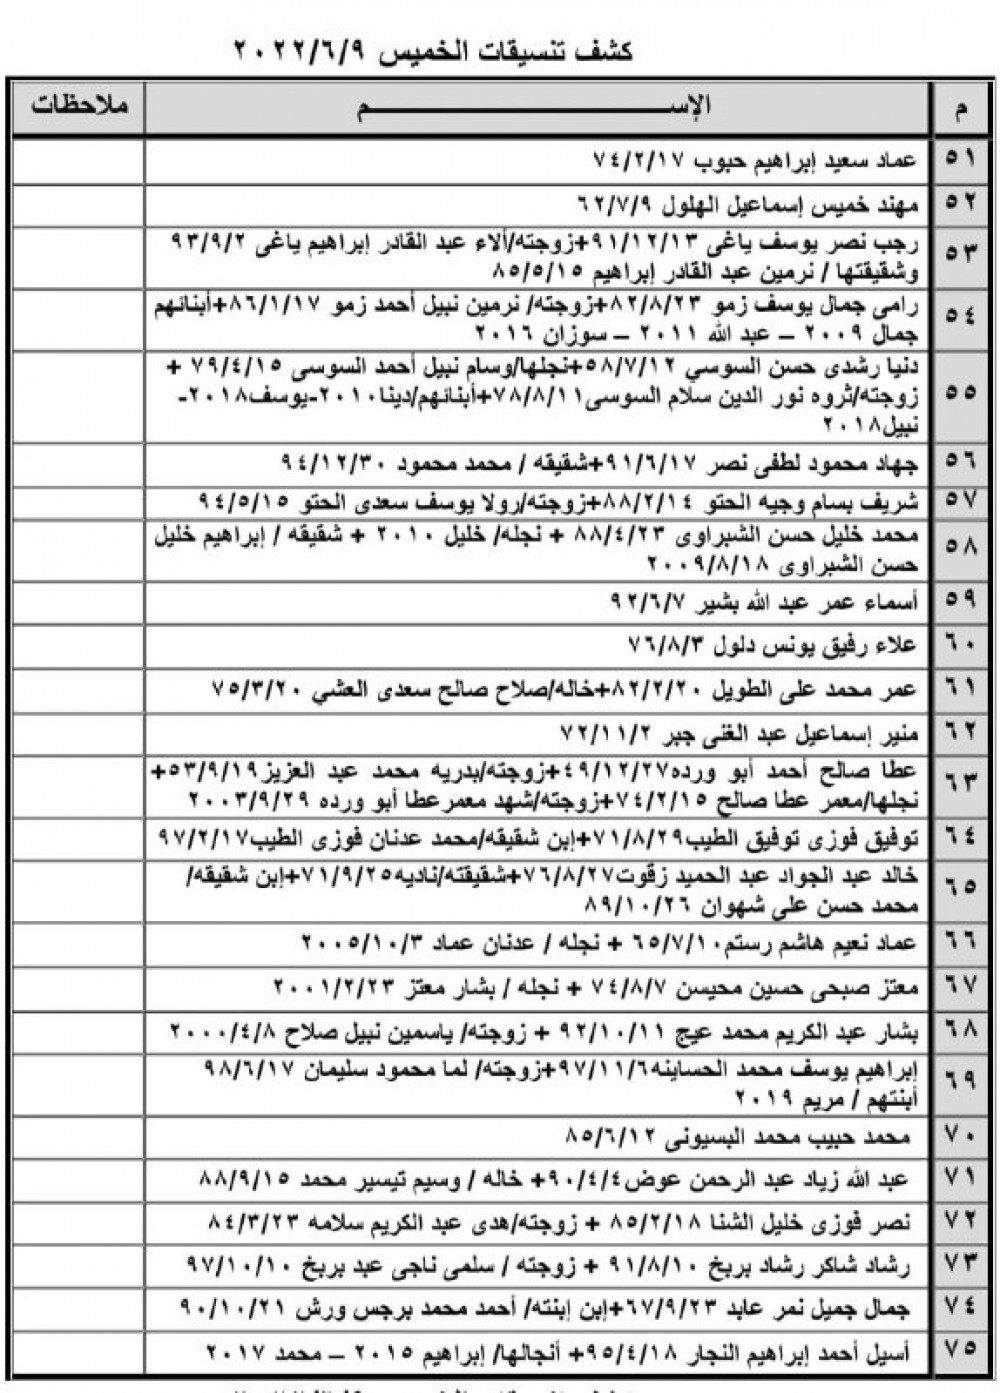 كشف تنسيقات الخميس ٢٠٢٢/٦/٩
م الإســـــــــــــــم ملاحظات
٥١ عماد سعيد إبراهيم حبوب ٧٤/٢/١٧
٥٢ مهند خميس إسماعيل الهلول ٦٢/٧/٩
٥٣ رجب نصر يوسف ياغى ٩١/١٢/١٣+زوجته/ألاء عبد القادر إبراهيم ياغى ٩٣/٩/٢
وشقيقتها / نرمين عبد القادر إبراهيم ٨٥/٥/١٥
٥٤ رامى جمال يوسف زمو ٨٢/٨/٢٣+زوجته/ نرمين نبيل أحمد زمو ٨٦/١/١٧+أبنائهم
جمال ٢٠٠٩ – عبد الله ٢٠١١ – سوزان ٢٠١٦
٥٥ دنيا رشدى حسن السوسي ٥٨/٧/١٢+نجلها/وسام نبيل أحمد السوسى ٧٩/٤/١٥ +
زوجته/ثروه نور الدين سلام السوسى٧٨/٨/١١+أبنائهم/دينا٢٠١٠-يوسف٢٠١٨-
نبيل٢٠١٨
٥٦ جهاد محمود لطفى نصر ٩١/٦/١٧+شقيقه / محمد محمود ٩٤/١٢/٣٠
٥٧ شريف بسام وجيه الحتو ٨٨/٢/١٤+زوجته/رولا يوسف سعدى الحتو ٩٤/٥/١٥
٥٨ محمد خليل حسن الشبراوى ٨٨/٤/٢٣ + نجله/ خليل ٢٠١٠ + شقيقه / إبراهيم خليل
حسن الشبراوى ٢٠٠٩/٨/١٨
٥٩ أسماء عمر عبد الله بشير ٩٢/٦/٧
٦٠ علاء رفيق يونس دلول ٧٦/٨/٣
٦١ عمر محمد على الطويل ٨٢/٢/٢٠+خاله/صلاح صالح سعدى العشي ٧٥/٣/٢٠
٦٢ منير إسماعيل عبد الغنى جبر ٧٢/١١/٢
٦٣ عطا صالح أحمد أبو ورده٤٩/١٢/٢٧+زوجته/بدريه محمد عبد العزيز٥٣/٩/١٩+
نجلها/معمر عطا صالح ٧٤/٢/١٥+زوجته/شهد معمرعطا أبو ورده ٢٠٠٣/٩/٢٩
٦٤ توفيق فوزى توفيق الطيب٧١/٨/٢٩+إبن شقيقه/محمد عدنان فوزى الطيب٩٧/٢/١٧
٦٥ خالد عبد الجواد عبد الحميد زقوت٧٦/٨/٢٧+شقيقته/ناديه٧١/٩/٢٥+إبن شقيقه/
محمد حسن على شهوان ٨٩/١٠/٢٦
٦٦ عماد نعيم هاشم رستم٦٥/٧/١٠ + نجله / عدنان عماد ٢٠٠٥/١٠/٣
٦٧ معتز صبحى حسين محيسن ٧٤/٨/٧ + نجله / بشار معتز ٢٠٠١/٢/٢٣
٦٨ بشار عبد الكريم محمد عيج ٩٢/١٠/١١ + زوجته/ ياسمين نبيل صلاح ٢٠٠٠/٤/٨
٦٩ إبراهيم يوسف محمد الحساينه٩٧/١١/٦+زوجته/ لما محمود سليمان ٩٨/٦/١٧
أبنتهم / مريم ٢٠١٩
٧٠ محمد حبيب محمد البسيونى ٨٥/٦/١٢
٧١ عبد الله زياد عبد الرحمن عوض٩٠/٤/٤+ خاله / وسيم تيسير محمد ٨٨/٩/١٥
٧٢ نصر فوزى خليل الشنا ٨٥/٢/١٨ + زوجته/هدى عبد الكريم سلامه ٨٤/٣/٢٣
٧٣ رشاد شاكر رشاد بربخ ٩١/٨/١٠ + زوجته / سلمى ناجى عبد بربخ ٩٧/١٠/١٠
٧٤ جمال جميل نمر عابد ٦٧/٩/٢٣+إبن إبنته/ أحمد محمد برجس ورش ٩٠/١٠/٢١
٧٥ أسيل أحمد إبراهيم النجار ٩٥/٤/١٨+ أنجالها/ إبراهيم ٢٠١٥ – محمد ٢٠١٧